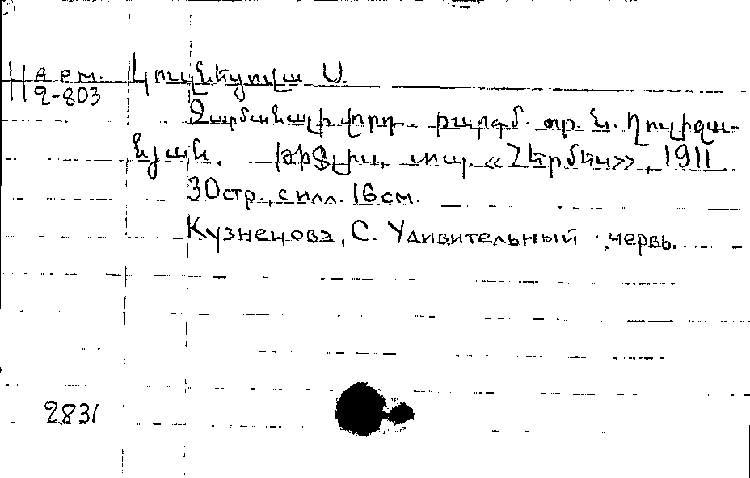 арм. Կուզնեցովա Ս.
2-803
Զարմանալի որդ. թարգմ. օր. Ն. Ղուլիզա-
նյան. Թիֆլիս, տպ. «Հերմես», 1911
30стр., с илл. 16см.
Кузнецова, С. Удивительный червь.
2831